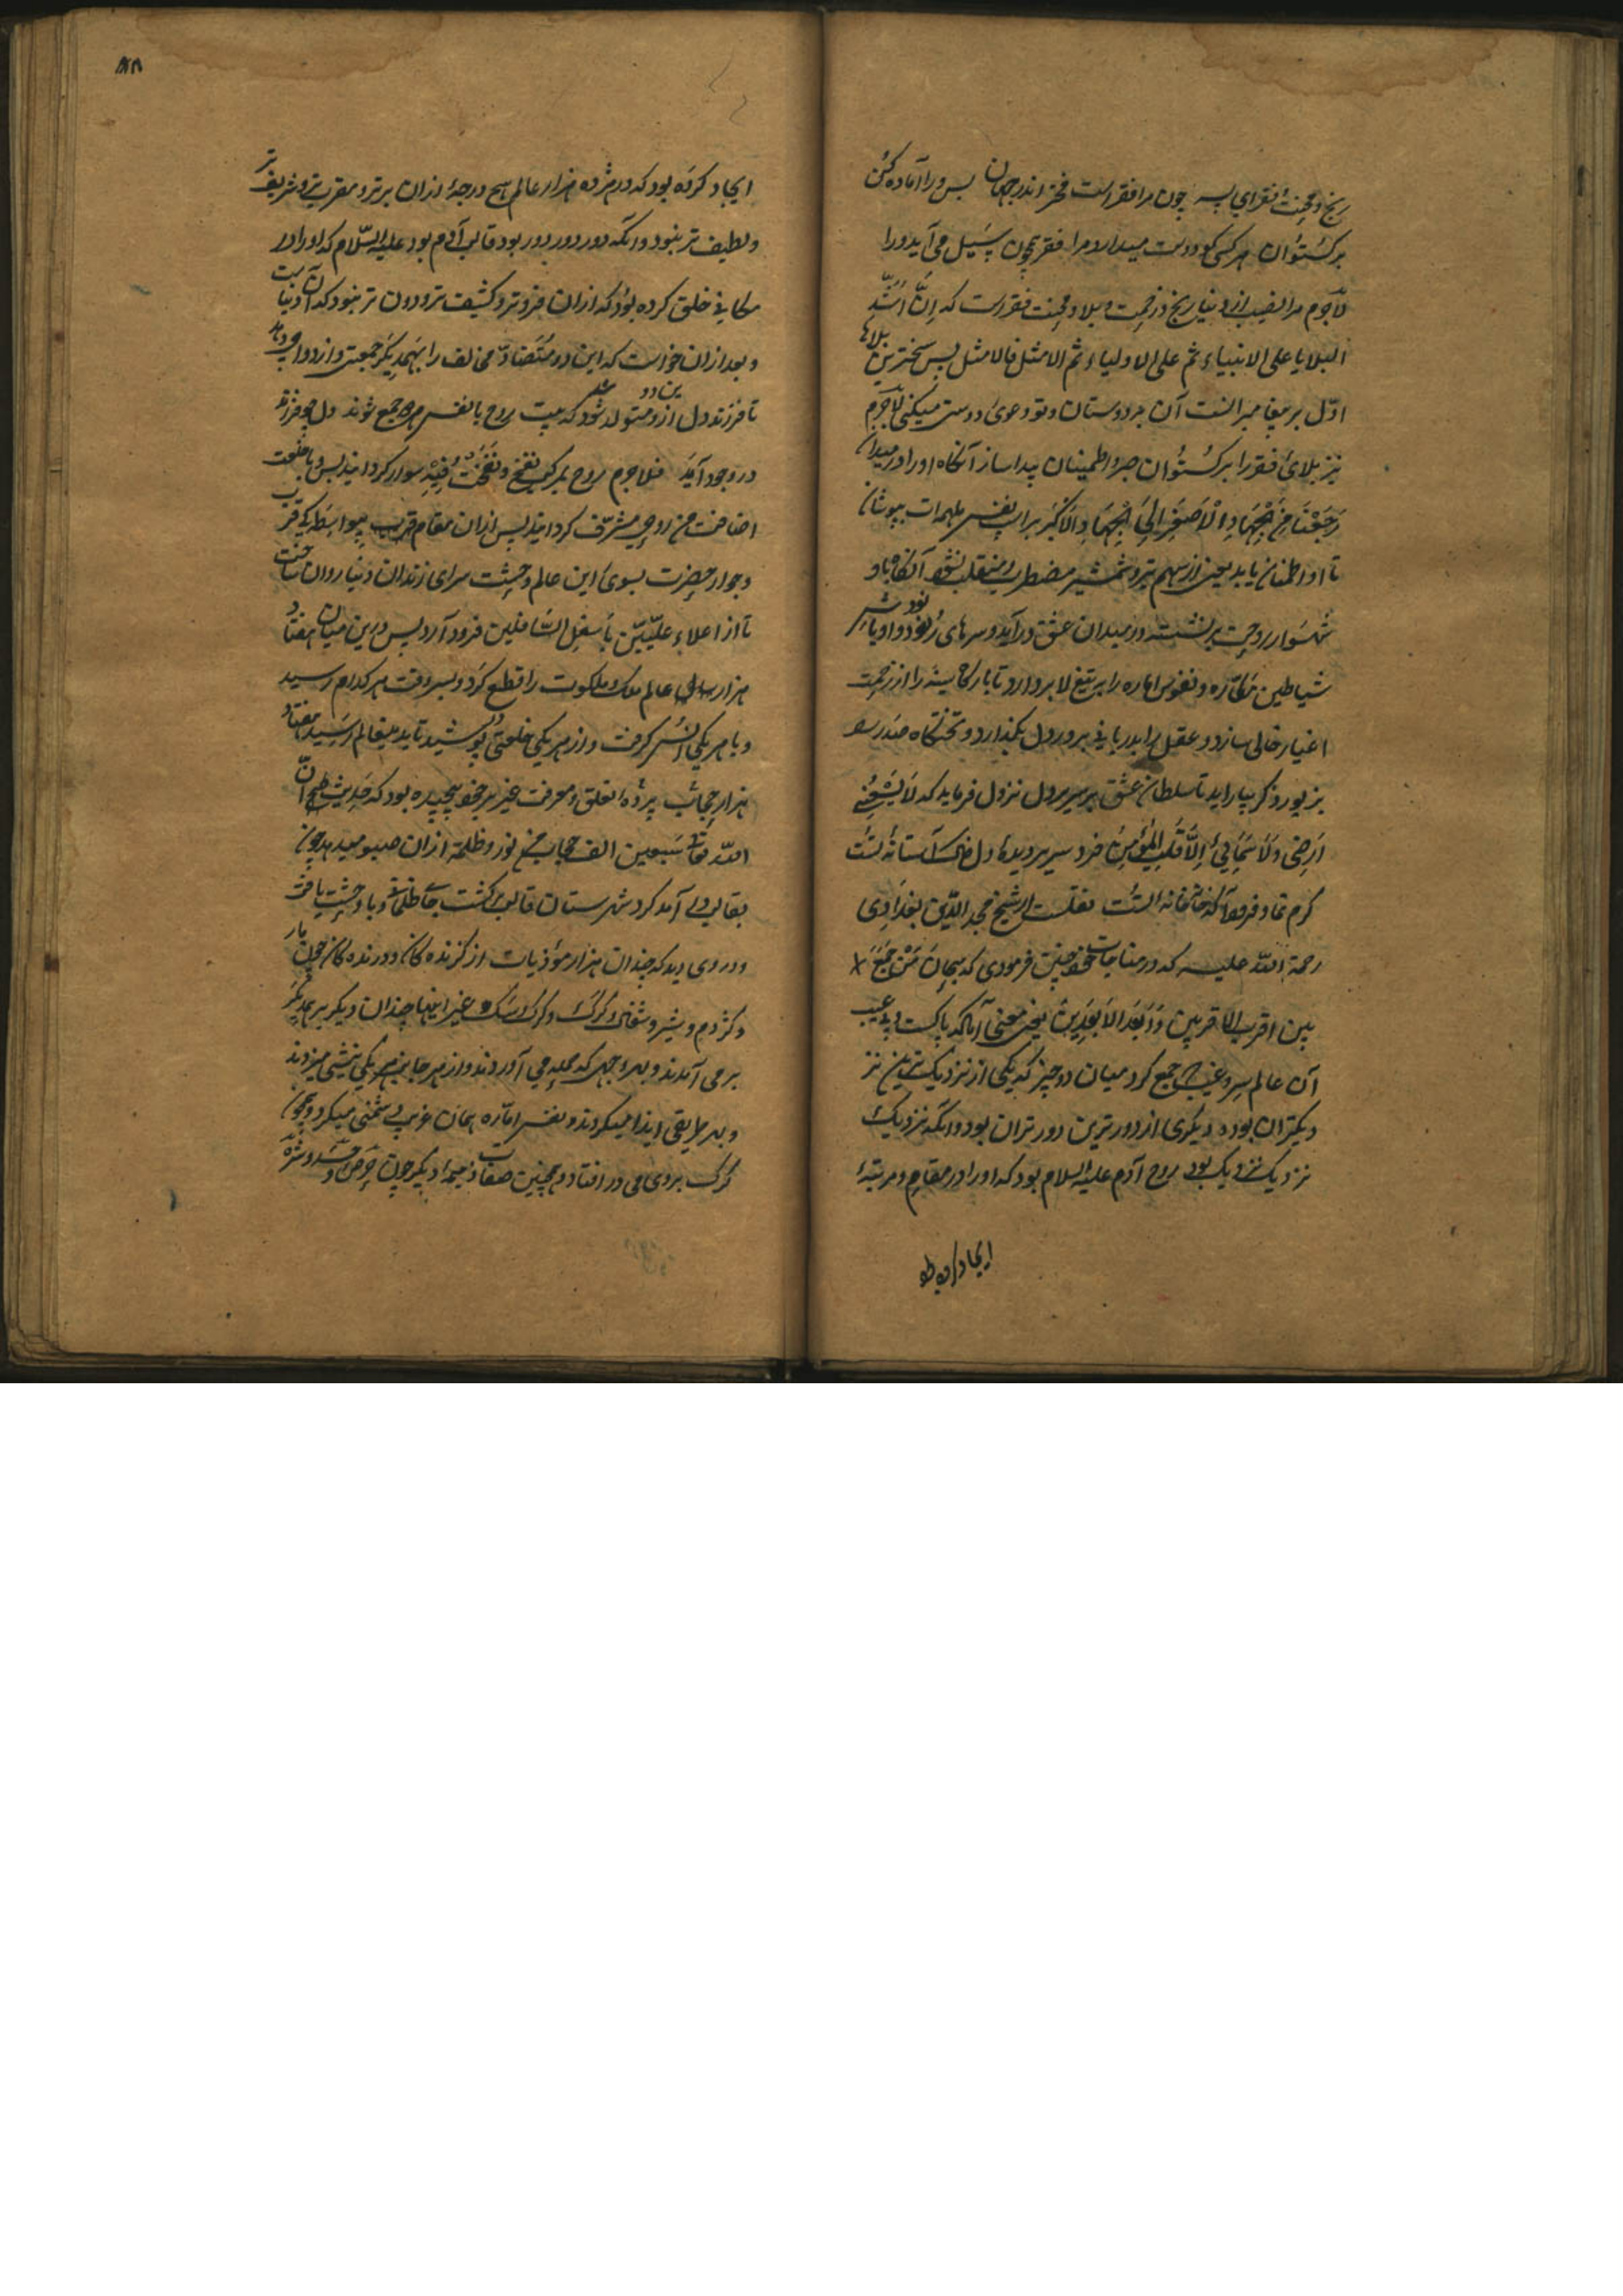 رنج و محنت فقر ای پسر چون مرا فقر است فخر اندر جهان پس ورا آماده کن
برکستوان هر کسی کو دوست میدارد مرا فقر همچون سیل می آید ورا
لاجرم مرا نصیب از دنیا رنج و زحمت و بلا و محنت فقر است که اِنَّ اَشَدَّ
البلایا علی الانبیاء ثم علی الاولیاء ثم الامثل فالامثل پس سخترین بلاها
اوّل بر پیغامبرانست آن بر دوستان و تو دعوی دوستی میکنی لاجرم
نیز بلای فقر را برکستوان صبر و اطمینان پیدا ساز آنگاه او را در میدان
رَجَعْنَا مِنَ الجِهَادِ الْاَصْغَرِ اِلَی الجِهَادِ الاَکْبَر بر اسپ نفس ملهمات بپوشان
تا او اطمینان یابد یعنی از سهم تیر و شمشیر مضطر و منقلب نشود آنگاه باد
شهسوار روحت بر نشسته در میدان عشق در آید و سرهای
شیاطین مکاره و نفوس اماره را بر تیغ لا بردارد تا بارگاه سینه را از زحمت
اغیار خالی سازد و عقل را بدربانی بر در دل بگذارد و تختگاه صدر
بزیور ذکر بیاراید تا سلطان عشق بر سریر دل نزول فرماید که لَا یَسَعُنِی
اَرضِی وَلَا سَمَائِی اِلَّا قَلْبِ المُؤمِنِ فرد سریر دیده دل خاک آستانه تست
کرم نما و فرود آ که خانه خانه تست نقلست از شیخ مجد الدین بغدادی
رحمة الله علیه که در مناجات خود چنین فرمودی که سبحان مَنْ جَمَعَ
بین اقرب الاقربین وَ اَبْعَدَ الاَبْعَدِینَ یعنی معنی آنکه پاکست و بی عیب
آن عالم سر و غیب که جمع کرد میان دو چیز که یکی از نزدیک ترین نز
دیکتران بود و دیگری از دورترین دورتران بود و آنکه نزدیک
نزدیک نزدیک بود روح آدم علیه السلام بود که او را در مقام و مرتبۀ
ایجاد کرده بود
ایجاد کرده بود که در هژده هزار عالم هیچ درجۀ ازان برتر و مقرب تر و شریف تر
و لطیف تر نبود و آنکه دور دور دور بود قالب آدم بود علیه السّلام که او را در
مکانی خلق کرده بود که ازان فروتر و کثیف تر و دون تر نبود که آن دنیاست
و بعد ازان خواست که این دو متضاد مخالف را بهمدیگر جمعیت و ازدواج دهد
تا فرزند دل ازین دو متولد شود که بیت روح با نفس چو جمع شوند دل چو فرزند
در وجود آید فلاجرم روح بر مرکب نفخ وَنَفَخْتُ فِیْهِ سوار گردانید پس و با خلعت
اضافت من روحی مشرّف گردانید پس ازان مقام قرب بیواسطه که قرب
و جوار حضرت بسوی این عالم وحشت سرای زندان دنیا روان ساخت
تا از اعلاء علیّین باسفل السّافلین فرود آرد پس درین میان هفتاد
هزار ساله عالم ملک و ملکوت را قطع کرد و بسر وقت هر کدام رسید
و با هر یکی انس گرفت و از هر یکی خلعتی پوشید تا بدینعالم رسید هفتاد
هزار حجاب پرده تعلق و معرفت غیر بر خود پیچیده بود که حدیث صحیح انّ
الله تعالی سبعین الف حجاب من نور و ظلمة ازان میدهد چون
بقالب در آمد گرد شهرستان قالب گشت جای ظلمانی و با وحشت یافت
و در وی دید که چندان هزار موذیات از گزنده گان و درنده گان چون مار
و کژدم و شیر و شغال و گرگ و سگ و غیر اینها چندان دیگر بر یکدیگر
بر می آمدند و بهر وجهی که حمله می آوردند و از هر جانب هر یکی نیشی میزدند
و بهر طریقی ایذا میکردند و نفس امّاره بسان غریب دشمنی میکرد و همچون
گرگ بر وی می در افتاد و همچنین صفات ذمیمه دیگر چون حرص و حسد و شره